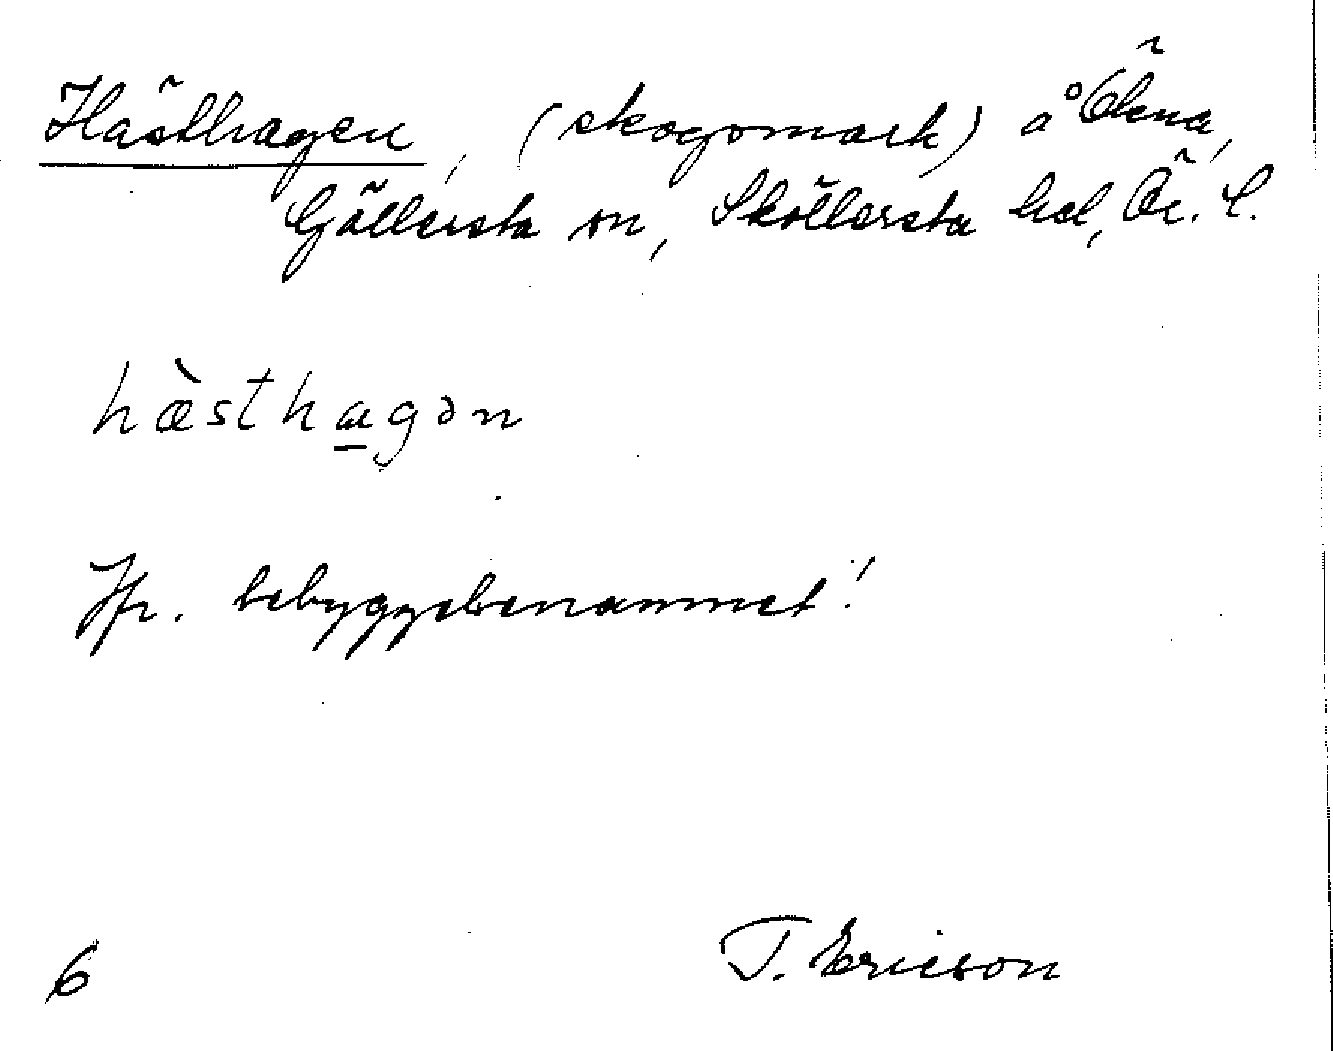 Hästhagen, (skogsmark) å Ökna,
Gällersta sn, Sköllersta hd, Ör. l.
hæ̀sthagən
Jfr. bebyggelsenamnet!
6
T. Ericson